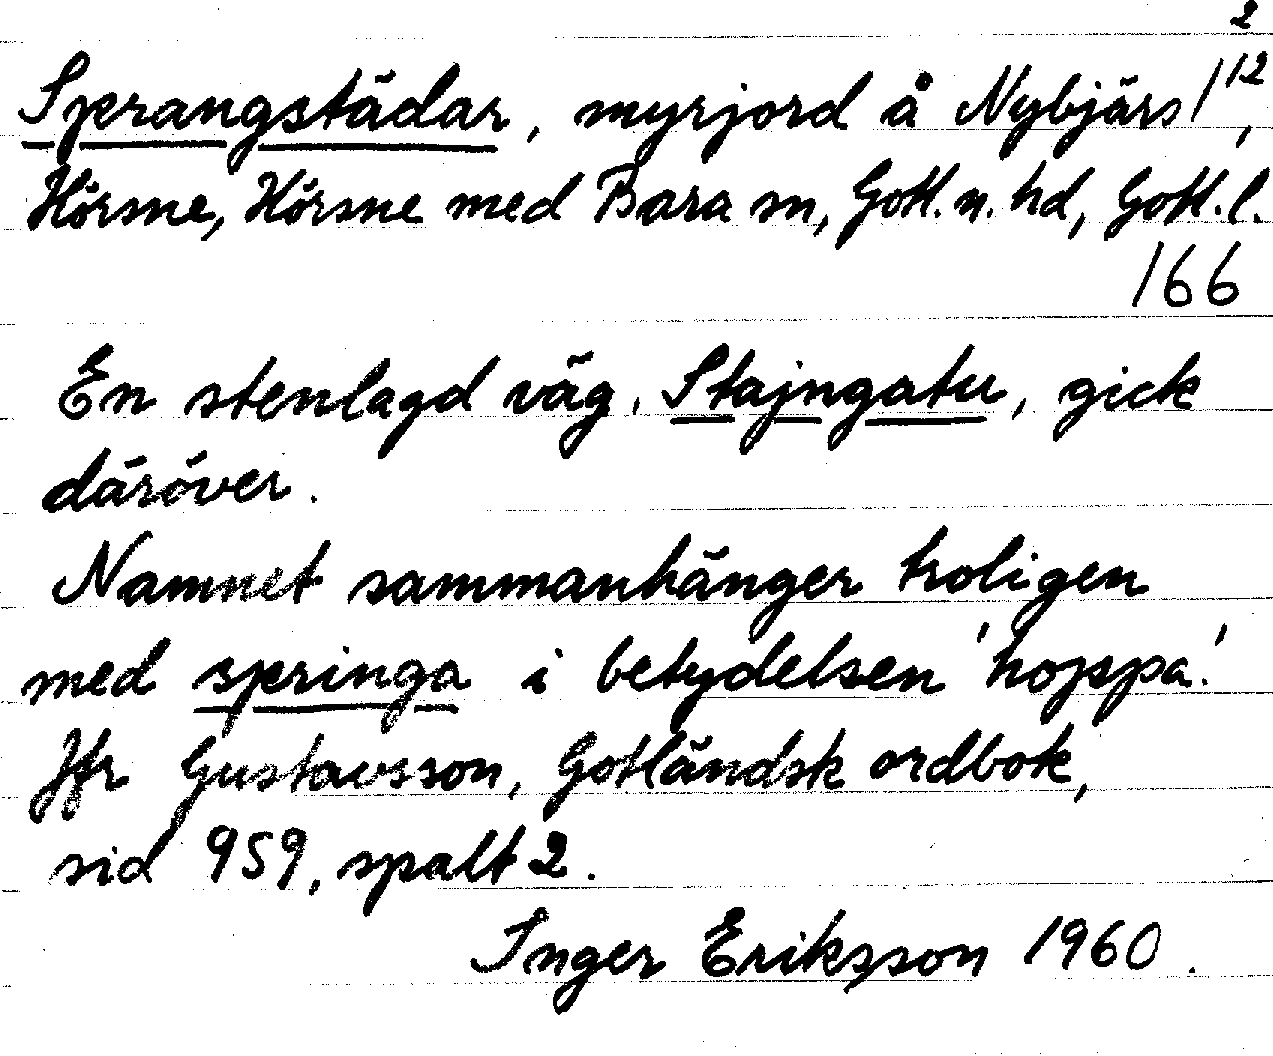 2
Sprangstädar, myrjord å Nybjärs 1¹²,
Hörsne, Hörsne med Bara sn, Gotl. n. hd, Gotl. l.
166
En stenlagd väg, Stajngatu, gick
däröver.
Namnet sammanhänger troligen
med springa i betydelsen 'hoppa'.
Jfr Gustavsson, Gotländsk ordbok,
sid 959, spalt 2.
Inger Eriksson 1960.